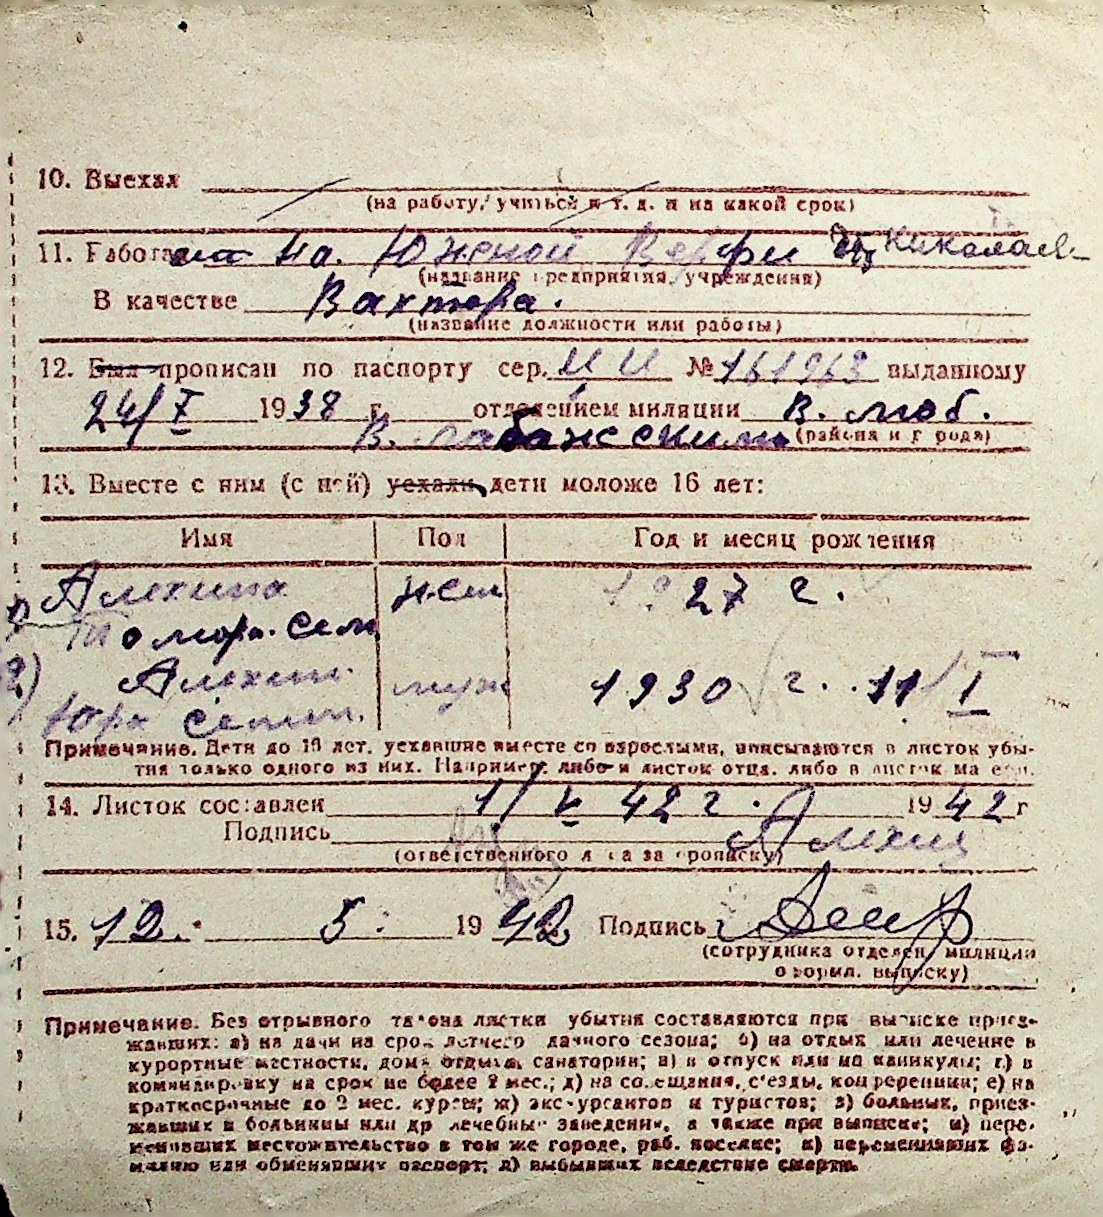 10. Выехал
(на работу, учиться и т. д. и на какой срок)
11. Работа на Южной Верфи Николаев
(название предприятия, учреждения)
В качестве Вахтера.
(название должности или работы)
12. Был прописан по паспорту сер. № 161963 выданному
24/I 1938 г. отделением милиции
(района и города)
13. Вместе с ним (с ней) уехали дети моложе 16 лет:
Имя Пол Год и месяц рождения
1) Алехина жен 1927 г.
Тамара Сем
2) Алехин муж 1930 г. 11/I
Юра Семен.
Примечание. Дети до 16 лет, уехавшие вместе со взрослыми, вписываются в листок убы-
тия только одного из них. Например: либо в листок отца, либо в листок матери.
14. Листок составлен 1/V 42 г. 1942 г
Подпись Алехин
(ответственного лица за прописку)
15. 12. 5. 1942 Подпись
(сотрудника отделен. милиции
оформл. выписку)
Примечание. Без отрывного талона листки убытия составляются при выписке приез-
жавших: а) на дачи на срок летнего дачного сезона; б) на отдых или лечение в
курортные местности, дома отдыха, санатории; в) в отпуск или на каникулы; г) в
командировку на срок не более 2 мес.; д) на совещания, с'езды, конференции; е) на
краткосрочные до 2 мес. курсы; ж) экскурсантов и туристов; з) больных, приез-
жавших в больницы или др. лечебные заведения, а также при выписке; и) пере-
менивших местожительство в том же городе, раб. поселке; к) переменивших фа-
милию или обменявших паспорт; л) выбывших вследствие смерти.